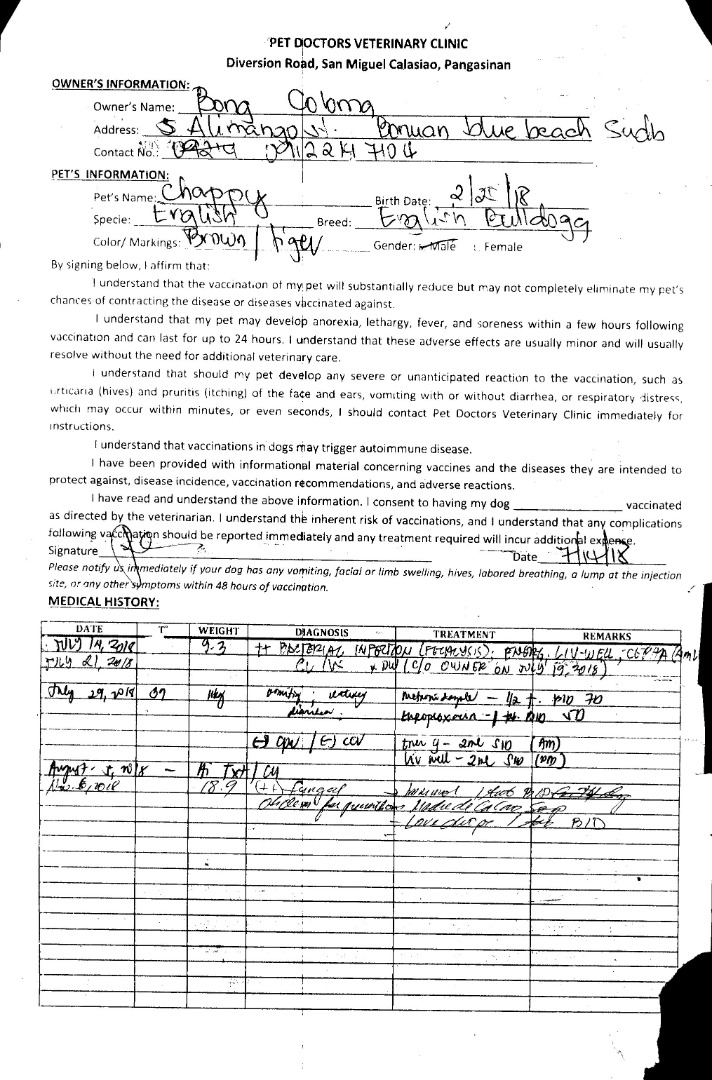 PET DOCTORS VETERINARY CLINIC
Diversion Road, San Miguel Calasiao, Pangasinan
OWNER'S INFORMATION:
Owner's Name: Bong Coloma
Address: 5 Alimango st. Bonuan blue beach Sudb
Contact No.: 0912 214 7104
PET'S INFORMATION:
Pet's Name: Chappy Birth Date: 2/25/18
Specie: English Breed: English Bulldogg
Color/ Markings: Brown / tiger Gender: Male : Female
By signing below, I affirm that:
I understand that the vaccination of my pet will substantially reduce but may not completely eliminate my pet's
chances of contracting the disease or diseases vaccinated against.
I understand that my pet may develop anorexia, lethargy, fever, and soreness within a few hours following
vaccination and can last for up to 24 hours. I understand that these adverse effects are usually minor and will usually
resolve without the need for additional veterinary care.
I understand that should my pet develop any severe or unanticipated reaction to the vaccination, such as
urticaria (hives) and pruritis (itching) of the face and ears, vomiting with or without diarrhea, or respiratory distress,
which may occur within minutes, or even seconds, I should contact Pet Doctors Veterinary Clinic immediately for
instructions.
I understand that vaccinations in dogs may trigger autoimmune disease.
I have been provided with informational material concerning vaccines and the diseases they are intended to
protect against, disease incidence, vaccination recommendations, and adverse reactions.
I have read and understand the above information. I consent to having my dog vaccinated
as directed by the veterinarian. I understand the inherent risk of vaccinations, and I understand that any complications
following vaccination should be reported immediately and any treatment required will incur additional expense.
Signature Date 7/14/18
Please notify us immediately if your dog has any vomiting, facial or limb swelling, hives, labored breathing, a lump at the injection
site, or any other symptoms within 48 hours of vaccination.
MEDICAL HISTORY:
DATE T° WEIGHT DIAGNOSIS TREATMENT REMARKS
JULY 14, 2018 9.3 ++ BACTERIAL INFECTION (FECALYSIS): LIV-WELL,
JULY 21, 2018 DW (C/O OWNER ON JULY 19, 2018)
July 29, 2018 11kg vomiting; - 1/2 t. BID 7D
diarrhea BID 5D
(-) CPV / (-) CCV ener g - 2ml SID (AM)
liv well - 2ml SID (PM)
August 5, 2018 -
Nov. 6, 2018 18.9 (+) Fungal
Madre de Cacao Soap
BID